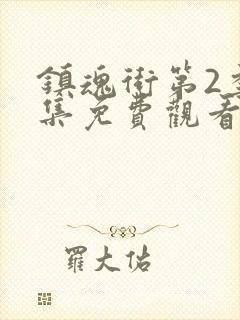 鎮魂街第2季
集免費觀看
羅大佑